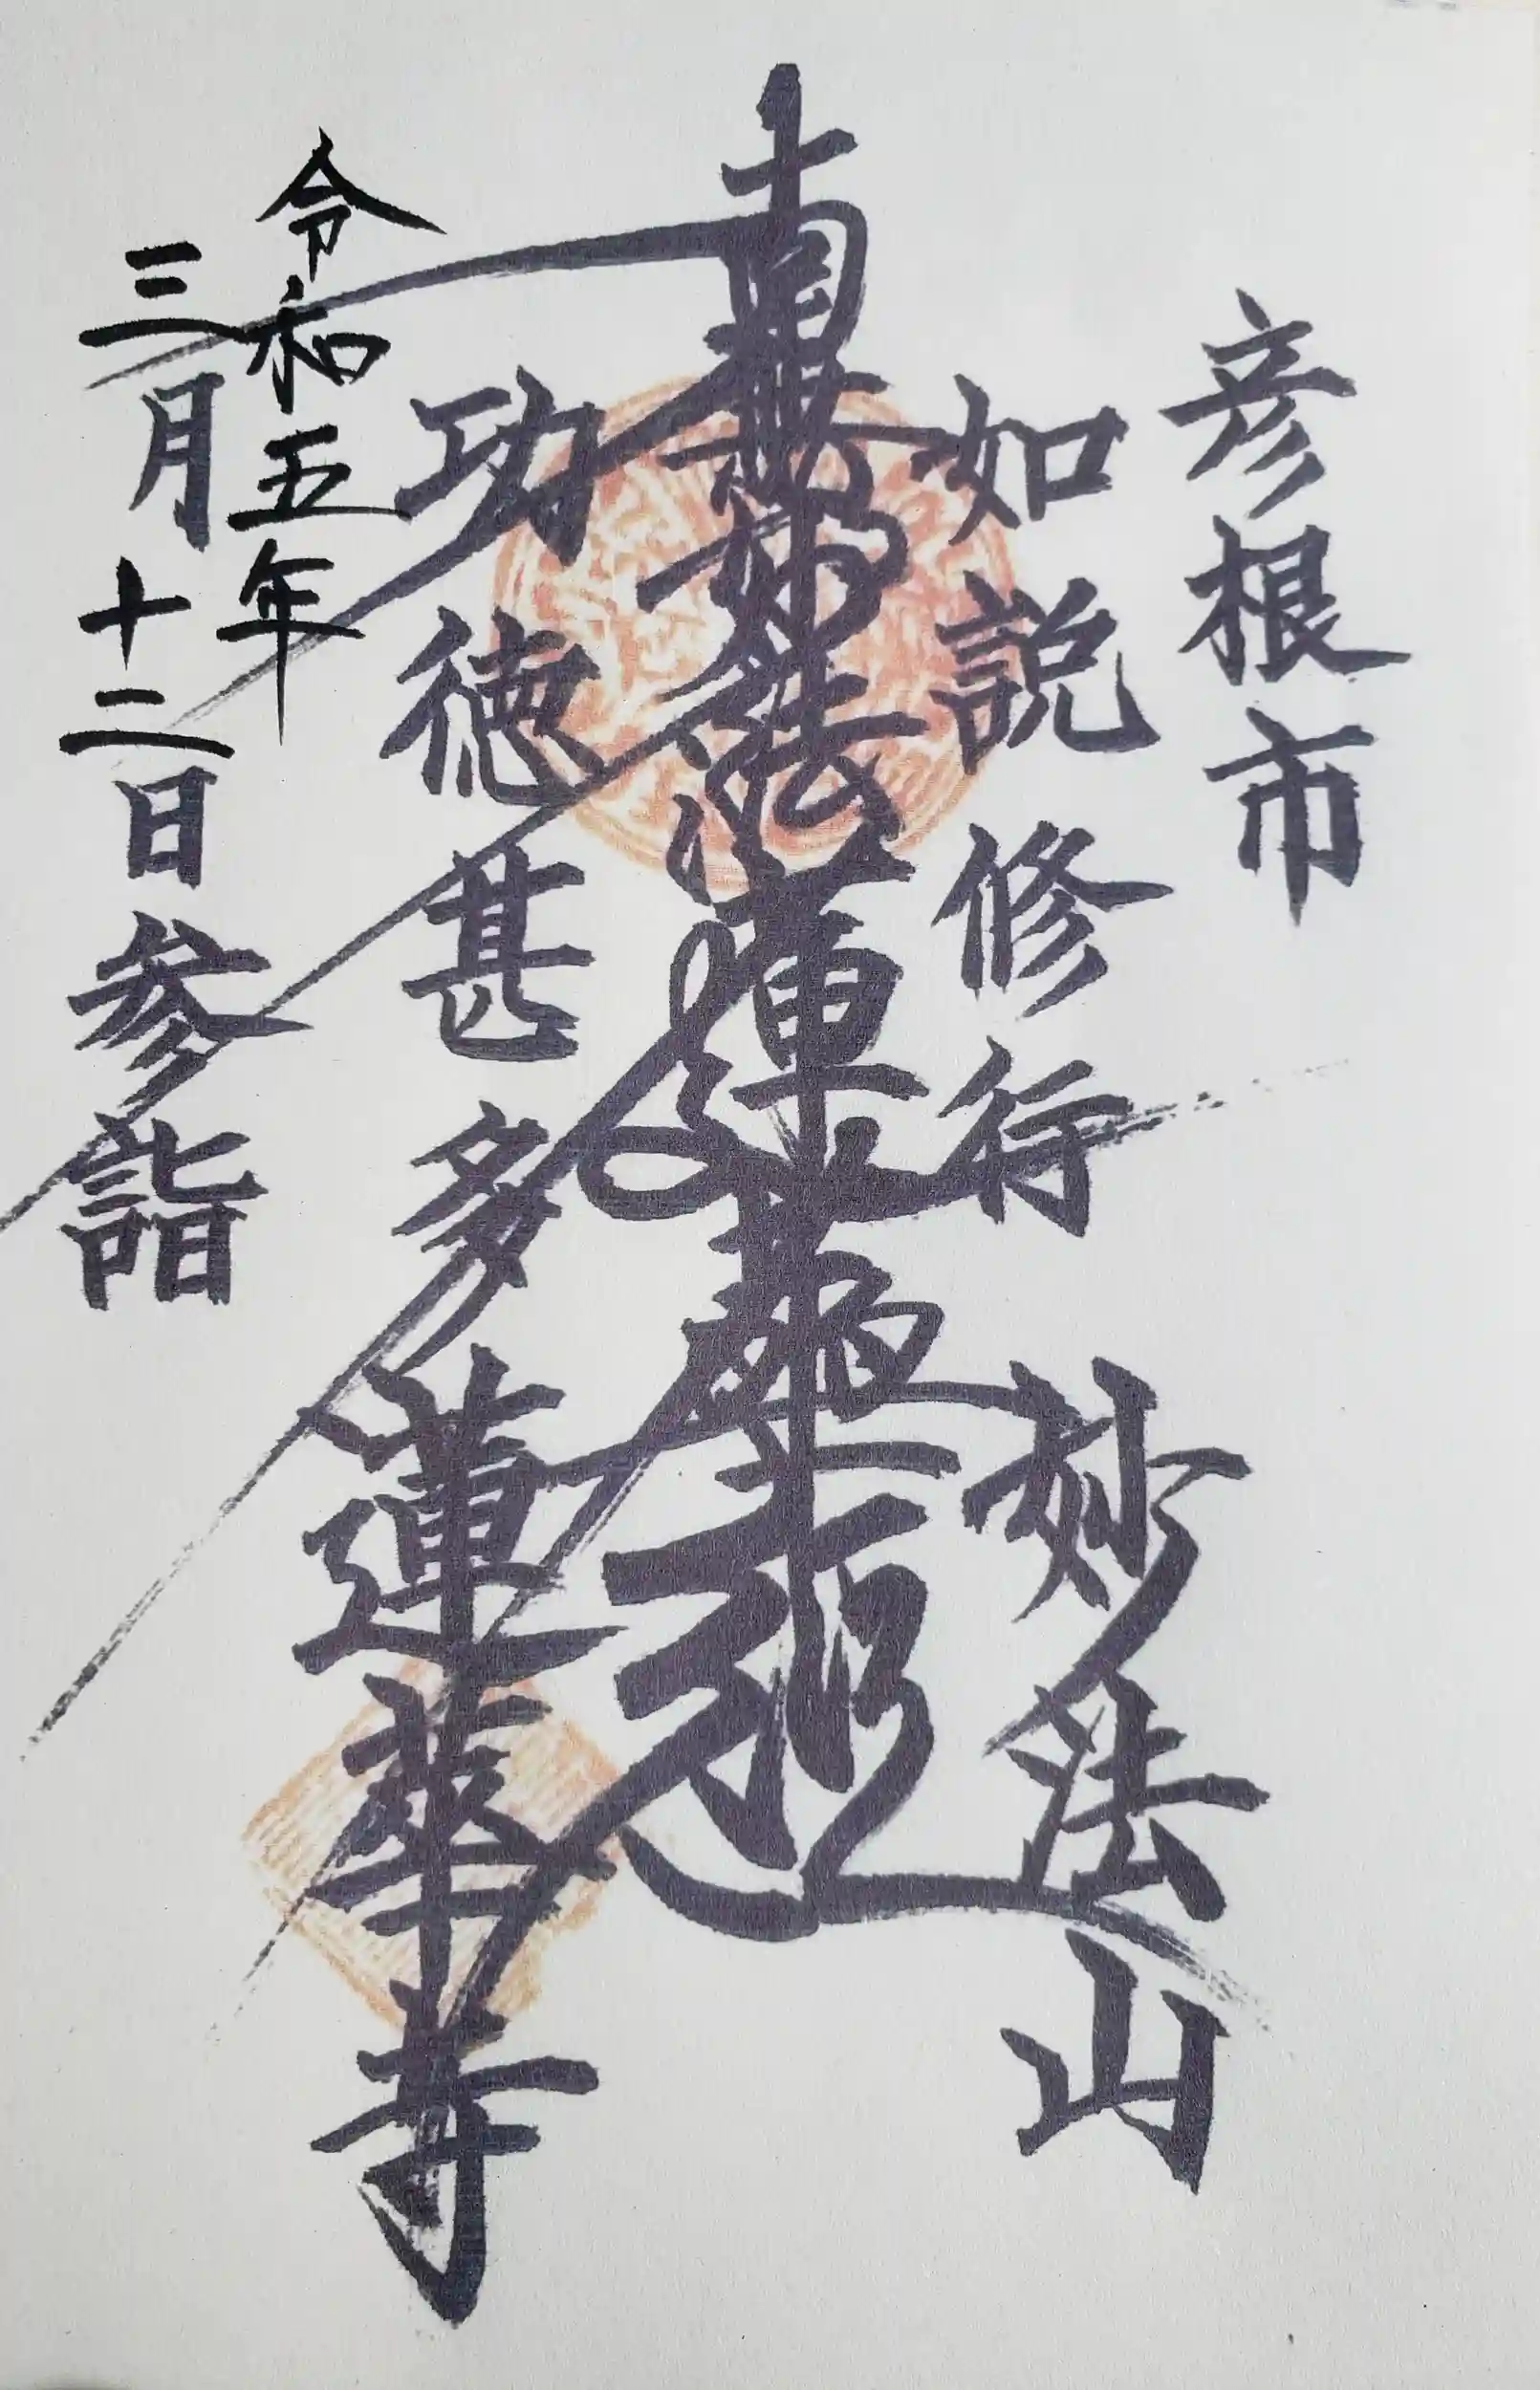 彦根市
如説修行 妙法山
南無妙法蓮華経
功徳甚多 蓮華寺
令和五年
三月十二日参詣